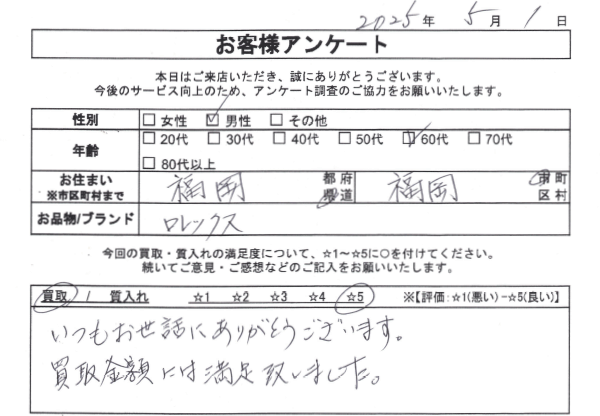 2025年 5月 1日
お客様アンケート
本日はご来店いただき、誠にありがとうございます。
今後のサービス向上のため、アンケート調査のご協力をお願いいたします。
性別 □女性 ☑男性 □その他
年齢 □20代 □30代 □40代 □50代 ☑60代 □70代
□80代以上
お住まい ※市区町村まで 福岡 都府県道 福岡 市町区村
お品物/ブランド ロレックス
今回の買取・質入れの満足度について、☆1～☆5に○を付けてください。
続いてご意見・ご感想などのご記入をお願いいたします。
買取 / 質入れ ☆1 ☆2 ☆3 ☆4 ☆5 ※【評価:☆1(悪い)-☆5(良い)】
いつもお世話にありがとうございます。
買取金額には満足致しました。